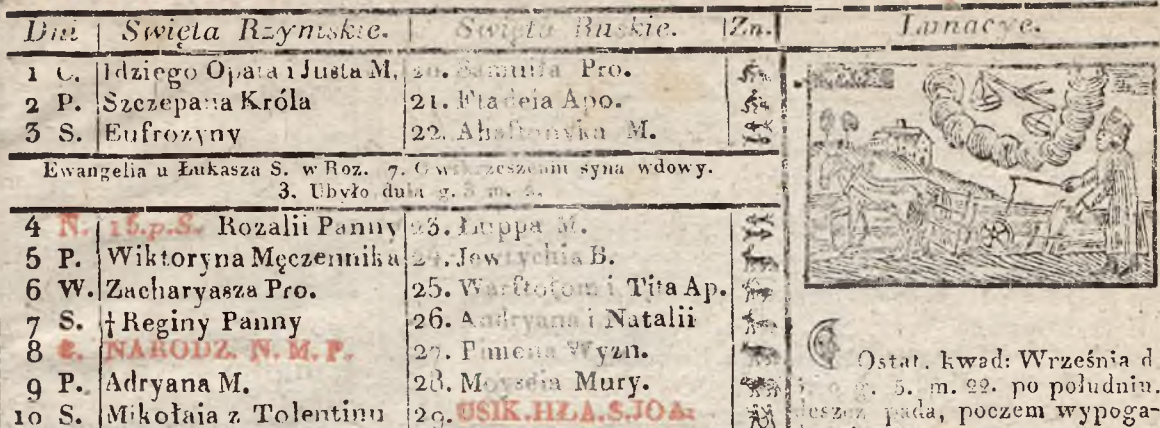 Dni | Swięta Rzymskie. | Swięta Ruskie. | Zn. | Lunacye.
1 C. Idziego Opata i Justa M. 20. Pro.
2 P. Szczepana Króla 21. Ftadeia Apo.
3 S. Eufrozyny 22. M.
Ewangelia u Łukasza S. w Roz. 7. O wskrzeszeniu syna wdowy.
3. Ubyło dnia g. m.
4 N. 15.p.S. Rozalii Panny 23. Łuppa M.
5 P. Wiktoryna Męczennika 24. B.
6 W. Zacharyasza Pro. 25. i Tita Ap.
7 S. † Reginy Panny 26. Andryana i Natalii
8 C. NARODZ. N. M. P. 27. Pimena Wyzn.
9 P. Adryana M. 28. Moyseia Mury.
10 S. Mikołaia z Tolentinu 29. USIK.HŁA.S.JOA:
Ostat. kwad: Września d
g. 5. m. 22. po południu.
deszcz pada, poczem wypoga-